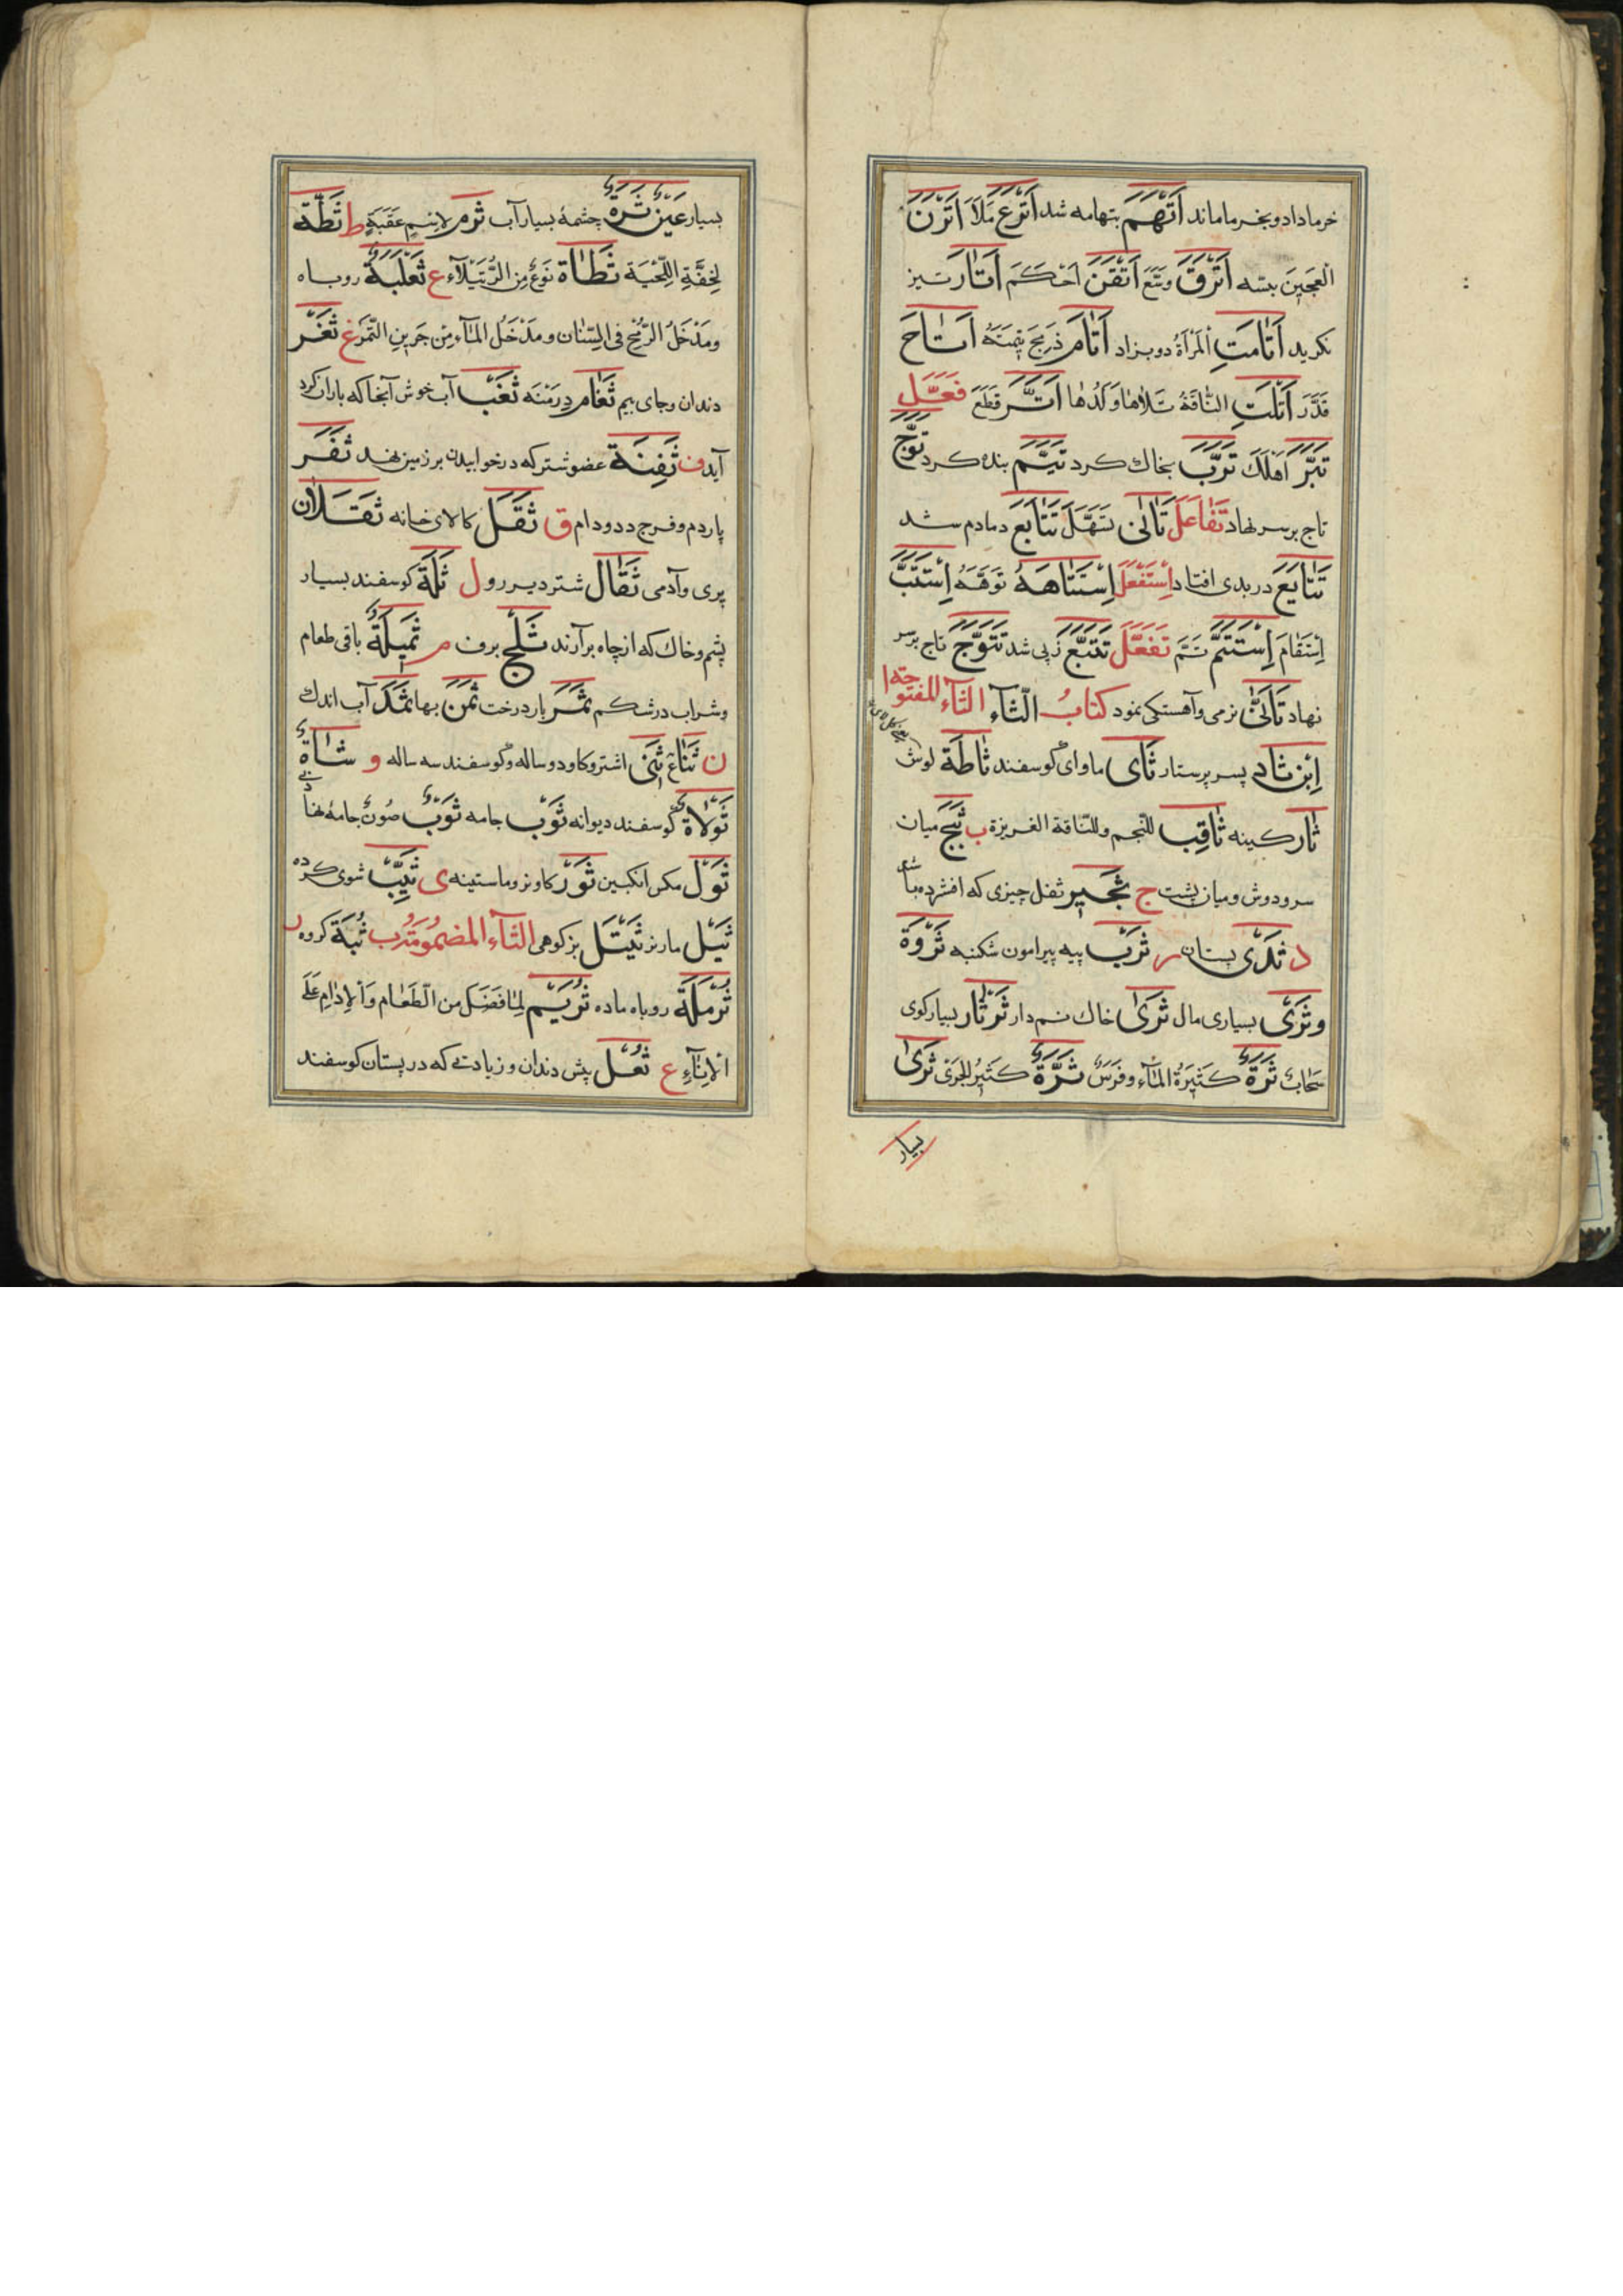 خرماداد و بخرما ماند اَتْهَمَ بتهامه شد اَتْرَعَ مَلَأَ اَتْرَنَ
الْعَجِينَ ببسّه اَتْرَقَ وسّع اَتْقَنَ اَحْكَمَ اَتْاَرَ تیز
نکرید اَتْامَتِ الْمَرْاَةُ دو بزاد اَتْامَ ذَبَحَ تِيمَتَهُ اَتاحَ
قَدَّرَ اَتْلَتِ النّاقَةُ تَلاهٰا وَلَدُهٰا اَتَرَّ قَطَعَ فَعَّلَ
تَبَّرَ اَهْلَكَ تَرَّبَ بخاك كرد تَيَّمَ بنده كرد تَوَّجَ
تاج بر سر نهاد تَفٰاعَلَ تَاٰنى تَمَهَّلَ تَتٰابَعَ دمادم شد
تَتٰايَعَ در بدى افتاد اِسْتَفْعَلَ اِسْتَتٰاهَهُ تَوَّهَهُ اِسْتَتَبَّ
اِسْتَقٰامَ اِسْتَتَمَّ تَمَّمَ تَفَعَّلَ تَتَبَّعَ ز پى شد تَتَوَّجَ تاج بر سر
نهاد تَاَنّٰى نرمى و آهستكى نمود كتابُ الثّآء الثّآء المفتوحة ا
اِبْن ثاد پسر پرستار ثَاى ماواى گوسفند ثَاطَة لوش
ثَار كينه ثاقِب للنّجم وللنّاقة الغريزة ب ثَبَج ميان
سر و دوش و ميان پشت ج ثَجير ثفل چيزى كه افشرده باشد
د ثَدْى پستان ر ثَرْب پيه پيرامون شكنبه ثَرْوَة
و ثَرْى بسيارى مال ثَرىٰ خاك نم دار ثَرْثٰار بسيار كوى
سَحٰابٌ ثَرَّةٌ كَثيرَةُ المآء و فَرَسٌ ثَرَّةٌ كَثيرُ الجَرْى ثَرىٰ
بسيار
بسيار عَيْنٌ ثَرَّةٌ چشمهٔ بسيار آب ثرم لاسم عَقَبَةٍ ط ثَطَّة
لِخِفَّةِ اللِّحْيَة ثَطٰاة نَوْعٌ مِنَ الرُّتَيْلآء ع ثَعْلَبَةٌ روباه
ومَدْخَلُ الرُّمْحِ فى السِّنان ومَدْخَلُ المآءِ مِنْ جَرينِ التَّمر غ ثَغْر
دندان و جاى بيم ثَغٰام دِرَمْنَه ثَغْب آب خوش آنجا كه باران گرد
آيد ف ثَفِنَة عضو شتر كه در خوابيدن بر زمين نهد ثَفَر
پاردم و فرج دد و دام ق ثَقَل كالاى خانه ثَقَلان
پرى و آدمى ثَقٰال شتر دير رو ل ثَلَّة گوسفند بسيار
پشم و خاك كه از چاه برآرند ثَلْج برف م ثَميلَةٌ باقى طعام
وشراب در شكم ثَمَر بار درخت ثَمَن بها ثَمَد آب اندك
ن ثَنٰاءٌ ثَنِى اشتر و كاو دو ساله و گوسفند سه ساله و شاةٌ
ثَوْلاةٌ گوسفند ديوانه ثَوْب جامه ثَوْبٌ صُونٌ جامهٔ نهاد
ثَوْل مكس انكبين ثَوْر كاو نر و ماستينه ى ثَيِّب شوى كرده
ثَيْل مار نر ثَيْتَل بز كوهى الثّآء المضمومة ب ثُبَة كروه ر
ثُرْمَلَة روباه ماده ثُرْيَم لِمٰا فَضَلَ من الطَّعٰام وَالْاِدٰامِ عَلَى
الْاِنٰآءِ ع ثُعْل پيش دندان و زيادتى كه در پستان گوسفند